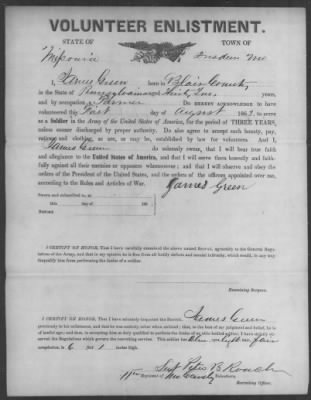 VOLUNTEER ENLISTMENT.
STATE OF TOWN OF
Missouri
I, James Green born in Blair County
in the State of Pennsylvania aged thirty two years,
and by occupation a Farmer Do HEREBY ACKNOWLEDGE to have
volunteered this first day of August 186 , to serve
as a Soldier in the Army of the United States of America, for the period of THREE YEARS,
unless sooner discharged by proper authority. Do also agree to accept such bounty, pay,
rations and clothing as are, or may be, established by law for volunteers. And I,
James Green do solemnly swear, that I will bear true faith
and allegiance to the United States of America, and that I will serve them honestly and faith-
fully against all their enemies or opposers whomsoever; and that I will observe and obey the
orders of the President of the United States, and the orders of the officers appointed over me,
according to the Rules and Articles of War.
James Green
Sworn and subscribed to, at
this day of 186 .
BEFORE
I CERTIFY ON HONOR, That I have carefully examined the above named Recruit, agreeably to the General Regu-
lations of the Army, and that in my opinion he is free from all bodily defects and mental infirmity, which would, in any way
disqualify him from performing the duties of a soldier.
Examining Surgeon.
I CERTIFY ON HONOR, That I have minutely inspected the Recruit, James Green
previously to his enlistment, and that he was entirely sober when enlisted; that, to the best of my judgment and belief, he is
of lawful age; and that, in accepting him as duly qualified to perform the duties of an able bodied soldier, I have strictly ob-
served the Regulations which govern the recruiting service. This soldier has blue eyes, fair
complexion, is 6 feet 1 inches high.
11th Regiment of Mo Cavalry Volunteers,
Recruiting Officer.